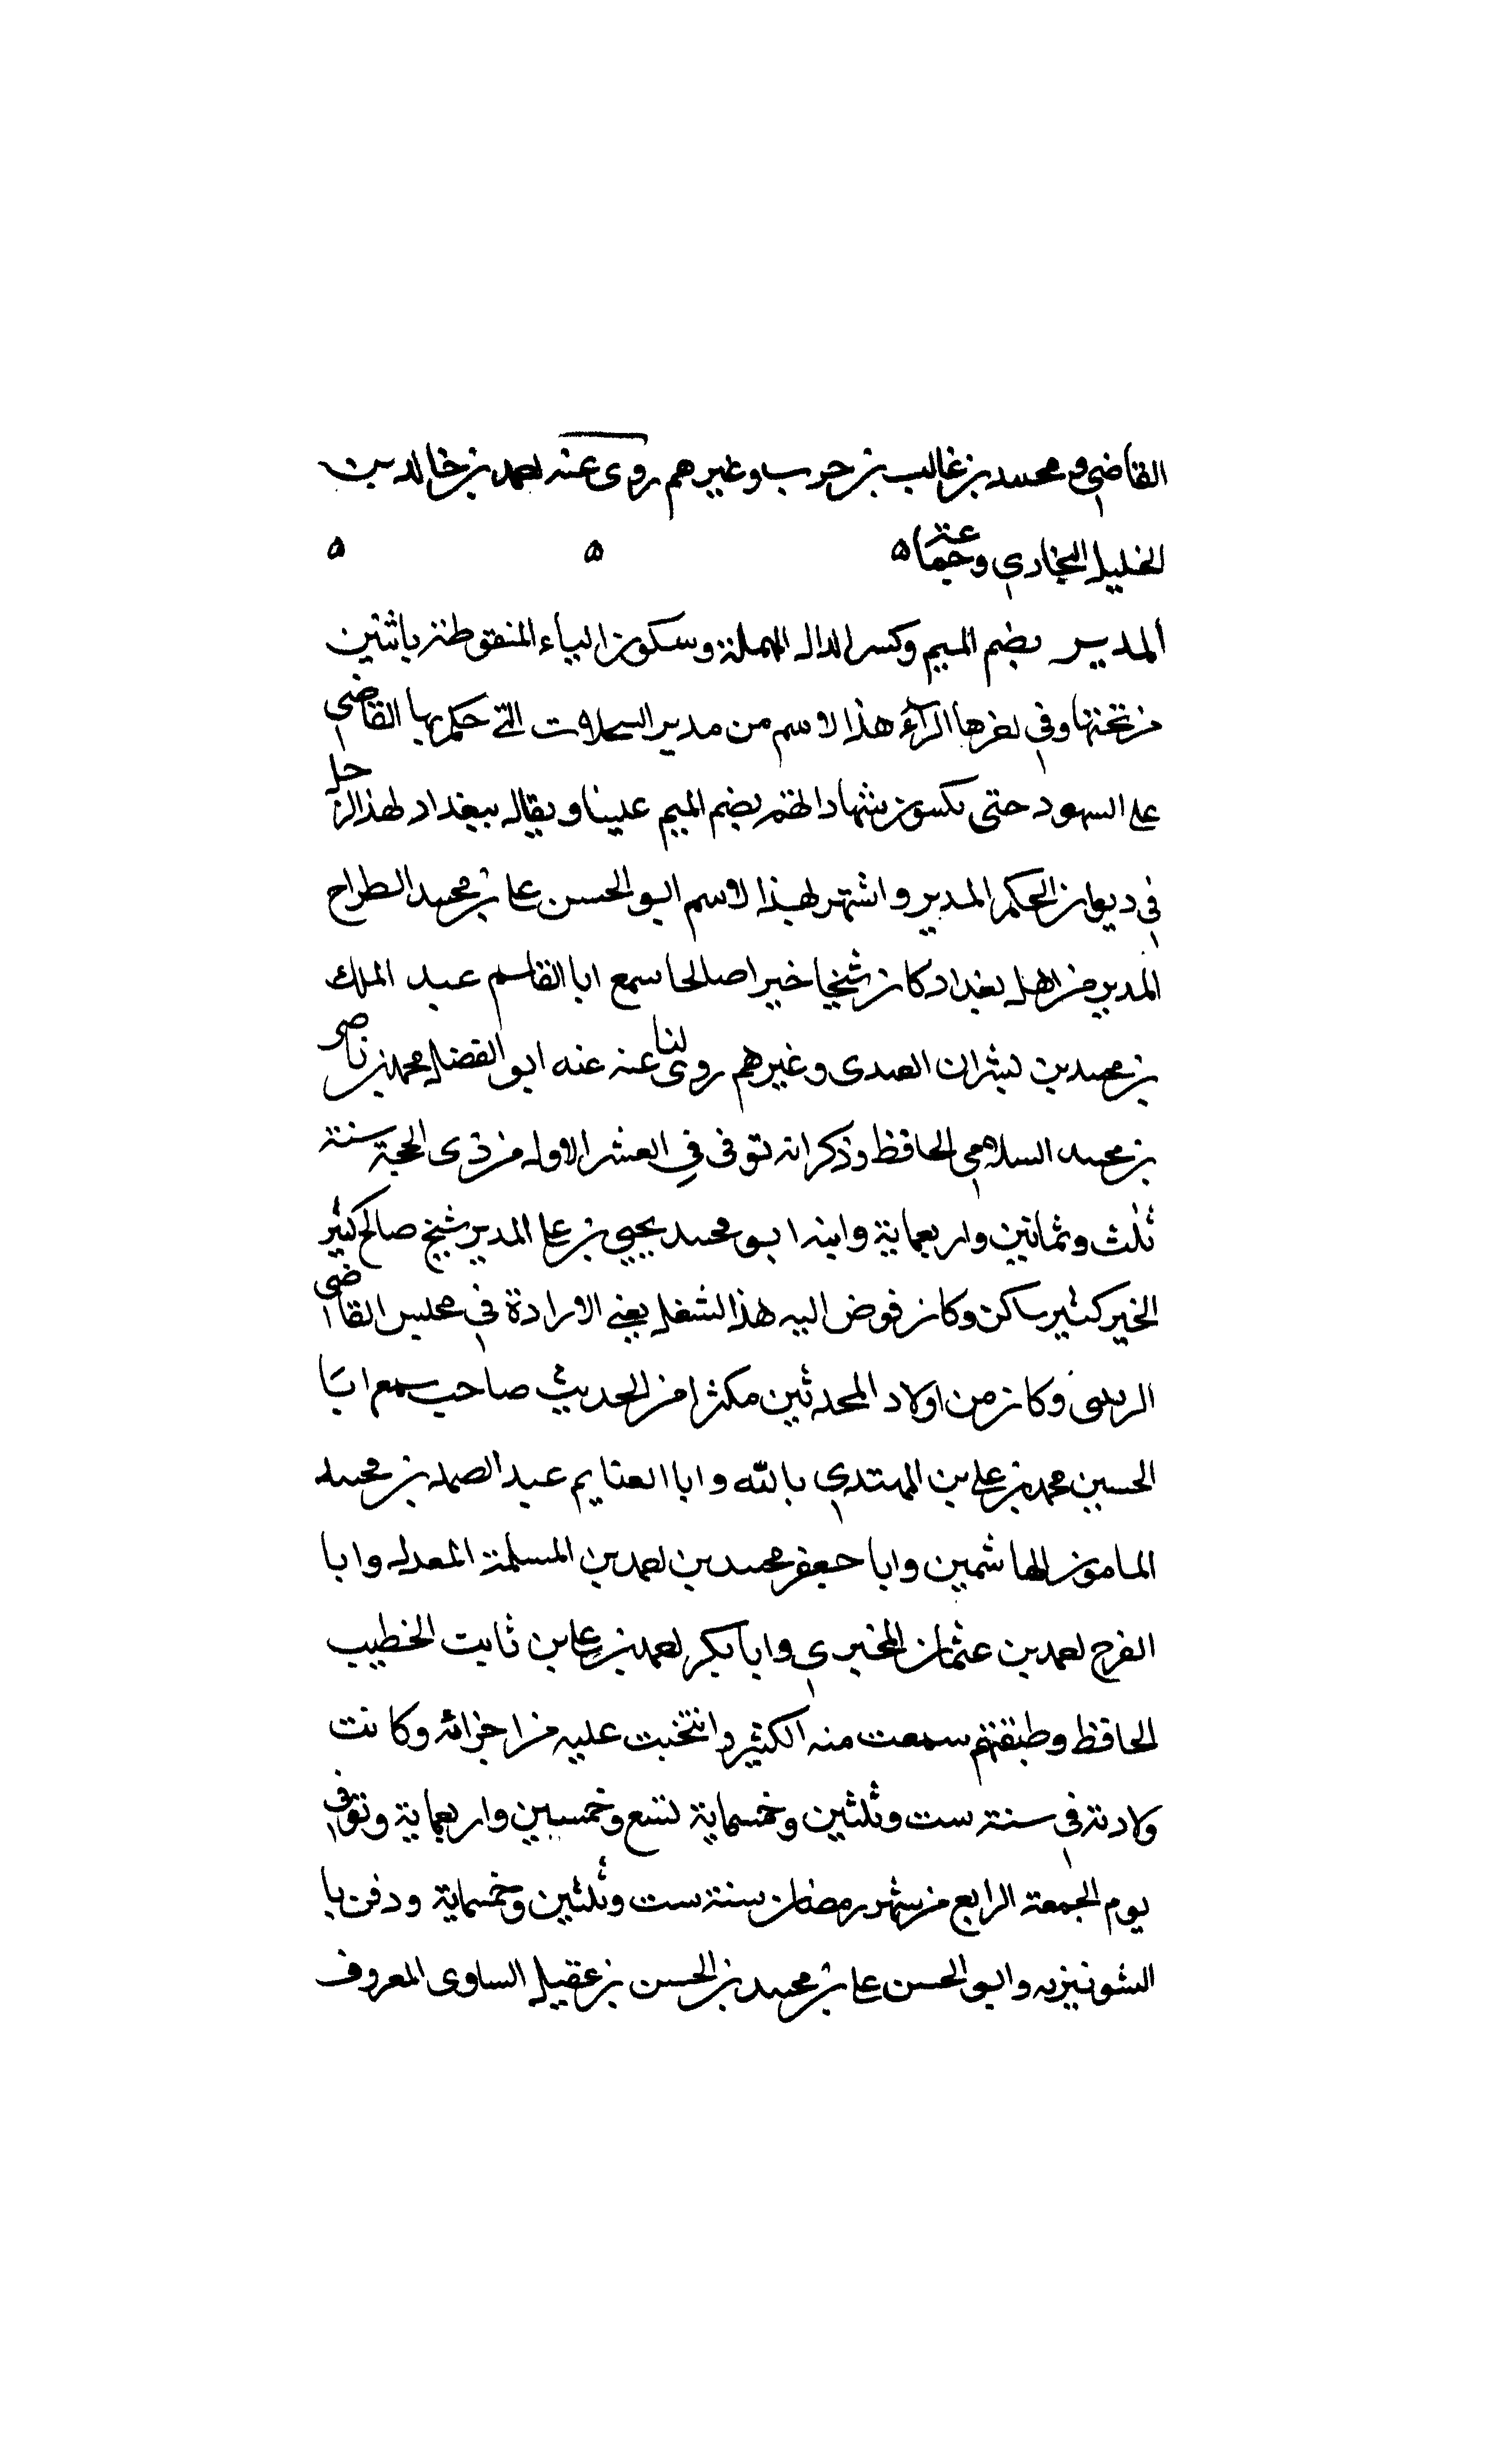 القاضي ومحمد بن غالب بن حرب وغيرهم روى عنه احمد بن خالد بن
الخليل البخاري وجماعة ٥ ٥ ٥
المدير بضم الميم وكسر الدال المهملة وسكون الياء المنقوطة باثنين
من تحتها وفي اخرها الراء هذا الاسم من مدير السجلات التي حكم بها القاضي
على الشهود حتى يكون شهاداتهم بضم الميم علينا ويقال ببغداد لهذا الرجل
في ديوان الحكم المدير واشتهر بهذا الاسم ابو الحسن علي بن محمد الطراح
المدير من اهل بغداد كان شيخا خيرا صالحا سمع ابا القاسم عبد الملك
بن محمد بن بشران العبدى وغيرهم روى لنا عنه عنه ابو الفضل محمد بن ناصر
بن محمد السلامي الحافظ وذكر انه توفى في العشر الاول من ذى الحجة سنة
ثلث وثمانين واربعماية وابنه ابو محمد يحيى بن علي المدير شيخ صالح كثير
الخير كثير ساكن وكان فوض اليه هذا الشغل يعني الارادة في مجلس القاضي
الزينبى وكان من اولاد المحدثين مكثرا من الحديث صاحب سمع ابا
الحسين محمد بن علي بن المهتدي بالله وابا الغنايم عبد الصمد بن محمد
المامون الهاشمين وابا جعفر محمد بن احمد بن المسلمة المعدل وابا
الفرج احمد بن عثمان المخبري وابا بكر احمد بن علي بن ثابت الخطيب
الحافظ وطبقتهم سمعت منه الكثير وانتخبت عليه من اجزائه وكانت
ولادته في سنة ست وثلثين وخمسماية تسع وخمسين واربعماية وتوفي
يوم الجمعة الرابع من شهر رمضان سنة ست وثلثين وخمسماية ودفن با
الشونيزيه وابو الحسن علي بن محمد بن الحسن بن عقيل الساوى المعروف